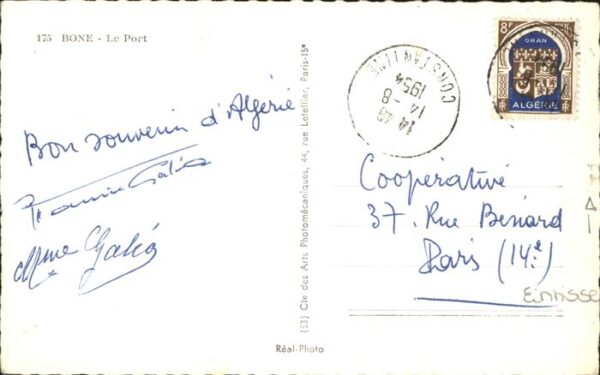 175 BONE - Le Port
Bon souvenir d'Algérie
Mme Galéa
(63) Cie des Arts Photomécaniques, 44, rue Letellier, Paris-15e
Réal-Photo
CONSTANTINE
14 -8
1954
8F
ORAN
ALGÉRIE
Coopérative
37. Rue Bénard
Paris (14e)